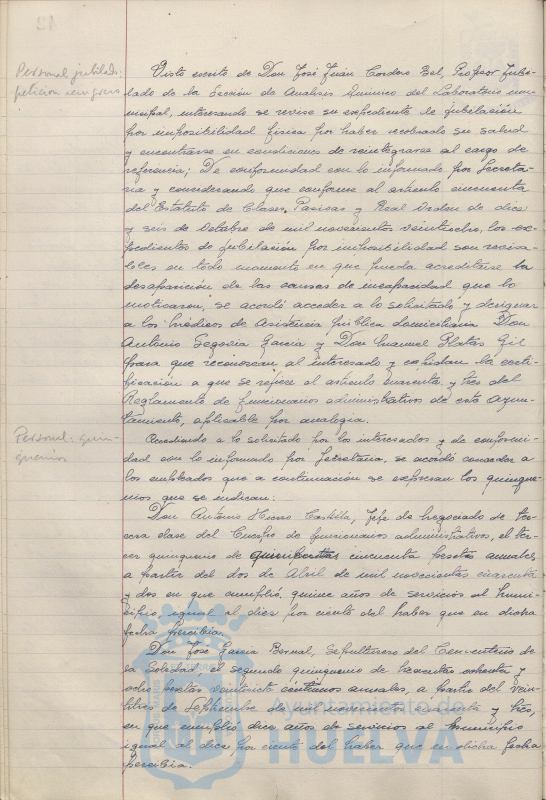 Personal jubilado:
petición reingreso
Visto escrito de Don José Juan Cordero Bel, Profesor Jubi-
lado de la Sección de Analisis Quimico del Laboratorio mu-
nicipal, interesando se revise su expediente de jubilación
por imposibilidad fisica por haber recobrado su salud
y encontrarse en condiciones de reintegrarse al cargo de
referencia; De conformidad con lo informado por Secreta-
ria y considerando que conforme al articulo cincuenta
del Estatuto de Clases Pasivas y Real Orden de diez
y seis de Octubre de mil novecientos veintiocho, los ex-
pedientes de jubilación por imposibilidad son revisa-
bles en todo momento en que pueda acreditarse la
desaparición de las causas de incapacidad que lo
motivaron, se acordó acceder a lo solicitado y designar
a los Médicos de Asistencia pública domiciliaria Don
Antonio Segovia Garcia y Don Manuel Platas Gil
para que reconozcan al interesado y expidan la certi-
ficación a que se refiere el articulo cuarenta y tres del
Reglamento de funcionarios administrativos de este Ayun-
tamiento, aplicable por analogia.
Personal: quin-
quenios
Accediendo a lo solicitado por los interesados y de conformi-
dad con lo informado por Secretaria, se acordó conceder a
los empleados que a continuación se expresan los quinque-
nios que se indican:
Don Antonio Hierro Castilla, Jefe de negociado de ter-
cera clase del Cuerpo de funcionarios administrativos, el ter-
cer quinquenio de cincuenta pesetas anuales,
a partir del dos de Abril de mil novecientos cuarenta
y dos en que cumplió quince años de servicios al Muni-
cipio, igual al diez por ciento del haber que en dicha
fecha percibia.
Don José Garcia Bernal, Sepulturero del Cementerio de
la Soledad, el segundo quinquenio de trescientas ochenta y
ocho pesetas centimos anuales, a partir del vein-
titres de Septiembre de mil novecientos cuarenta y tres,
en que cumplió diez años de servicios al Municipio
igual al diez por ciento del haber que en dicha fecha
percibia.
Ayuntamiento de
HUELVA